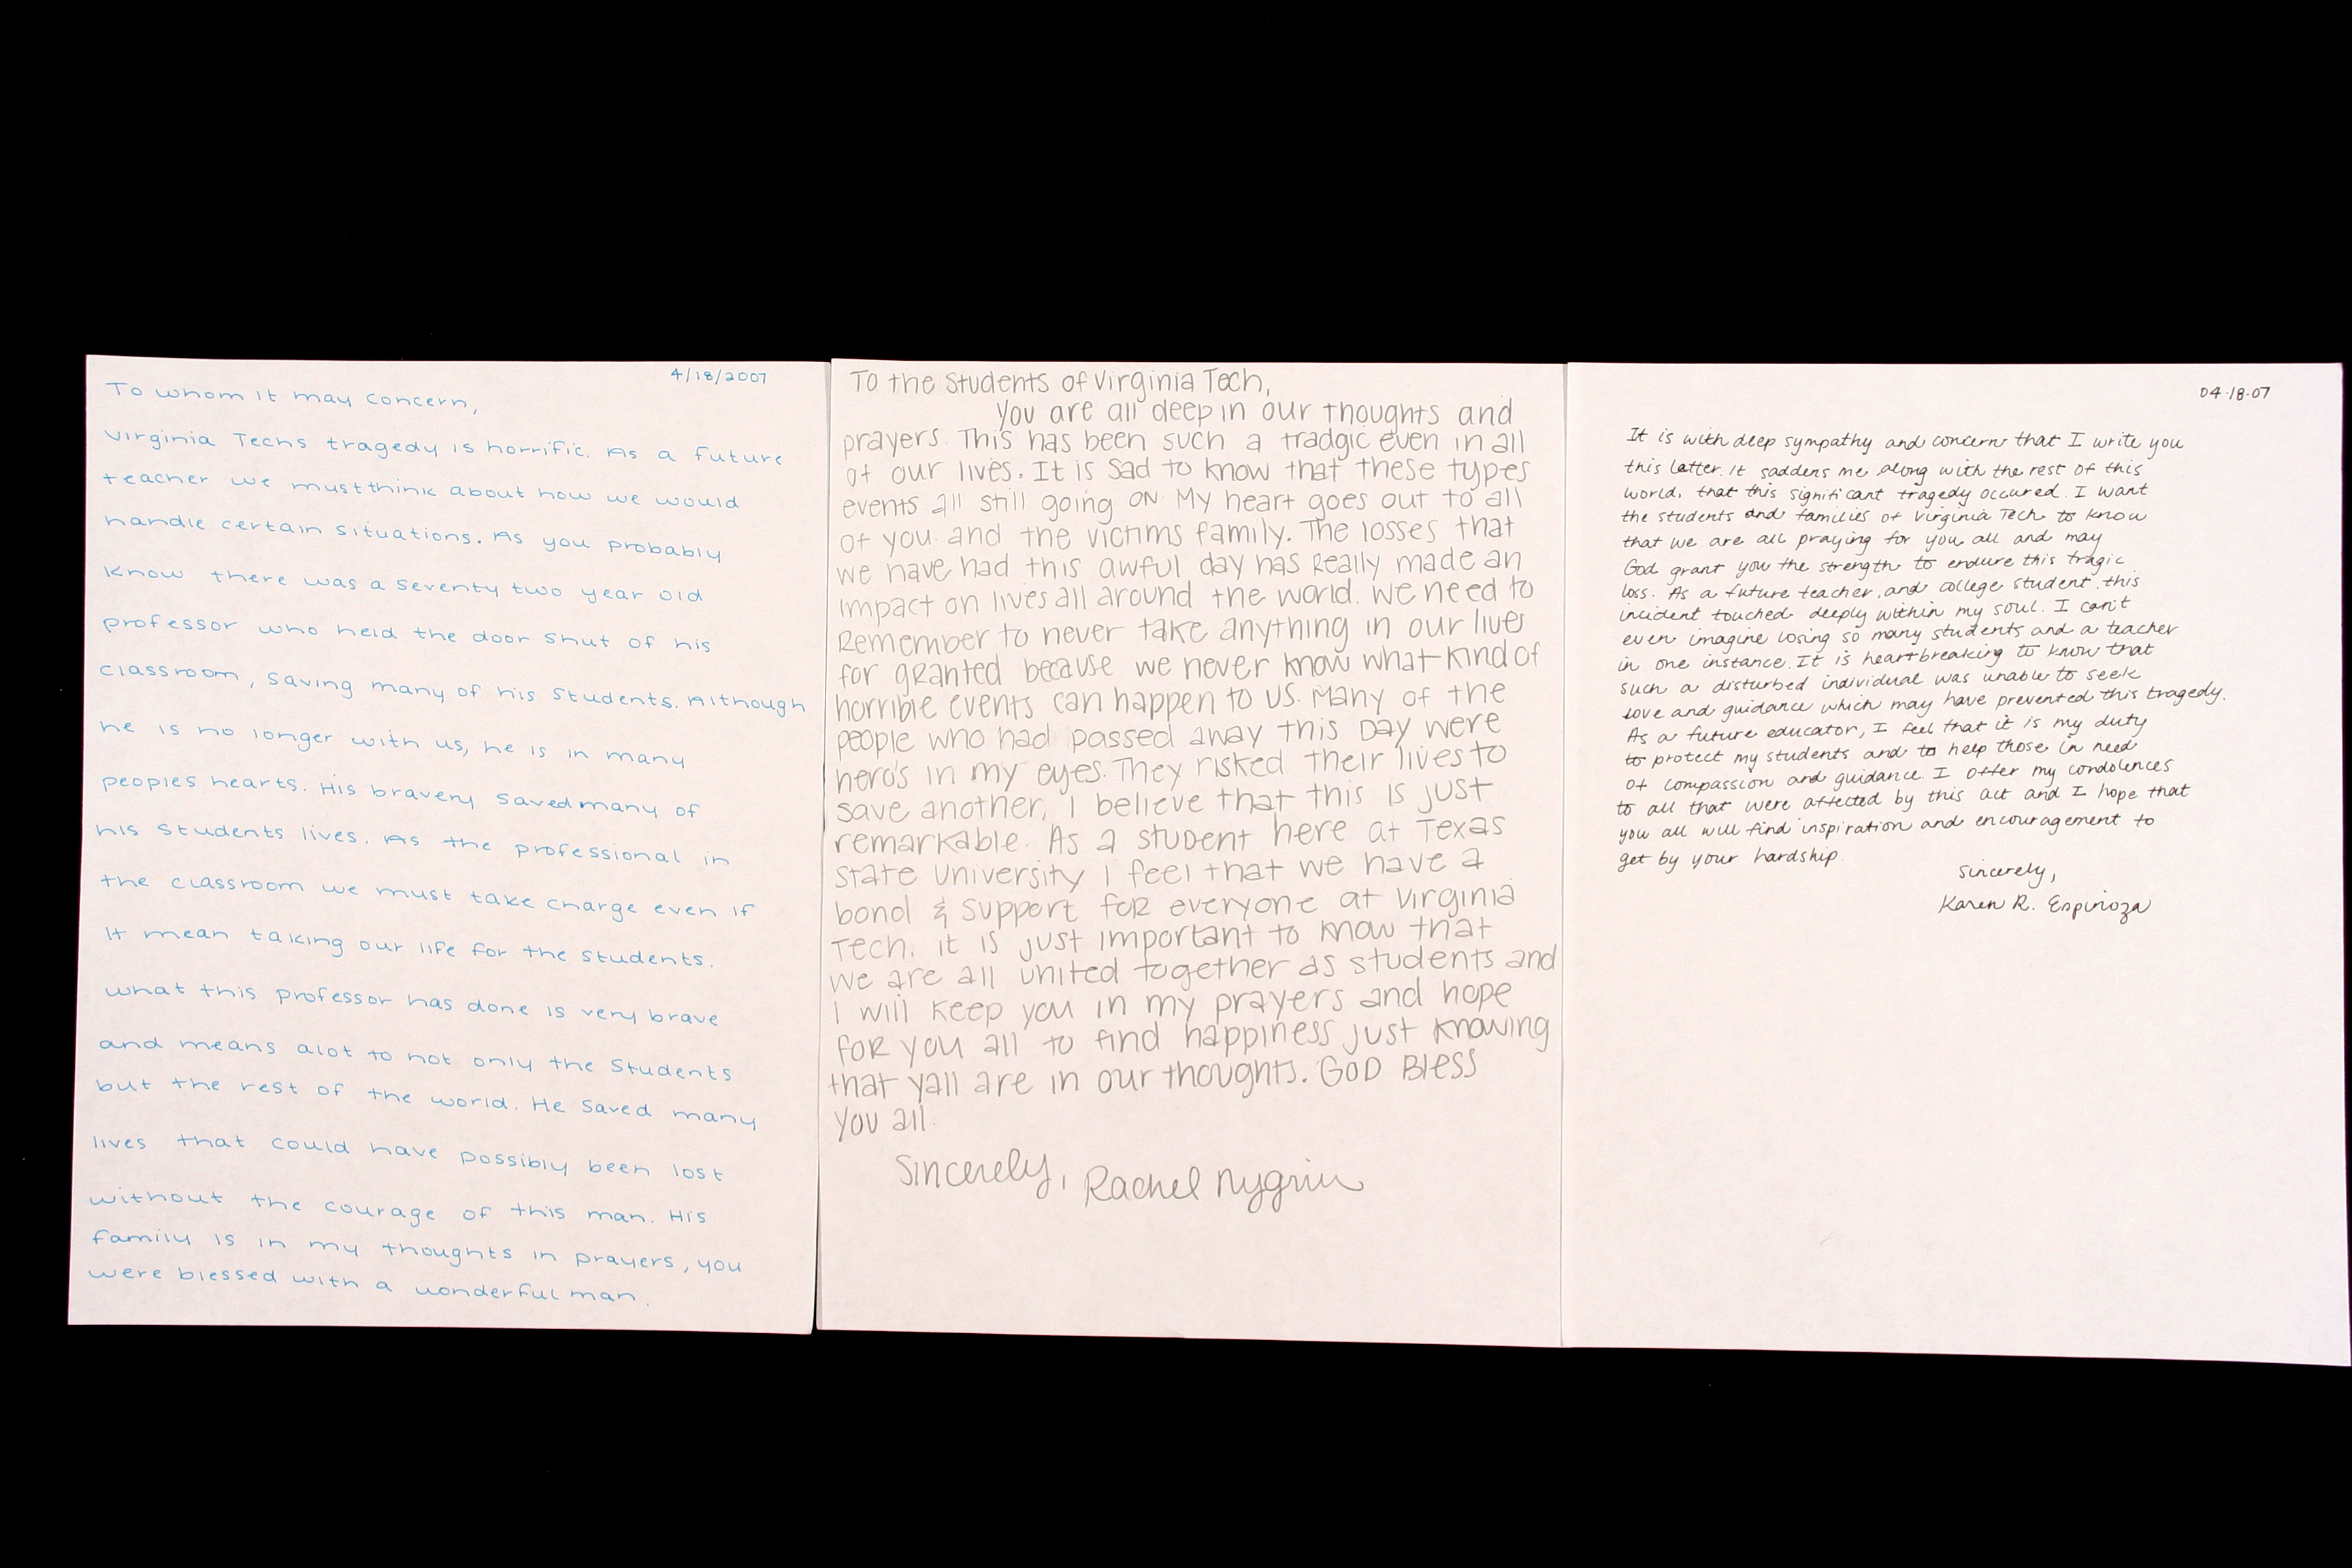 4/18/2007
To whom it may concern,
Virginia Techs tragedy is horrific. As a future
teacher we must think about how we would
handle certain situations. As you probably
know there was a seventy two year old
professor who held the door shut of his
classroom, saving many of his students. Although
he is no longer with us, he is in many
peoples hearts. His bravery saved many of
his students lives. As the professional in
the classroom we must take charge even if
it mean taking our life for the students.
what this professor has done is very brave
and means alot to not only the students
but the rest of the world. He saved many
lives that could have possibly been lost
without the courage of this man. His
family is in my thoughts in prayers, you
were blessed with a wonderful man.
To the Students of Virginia Tech,
You are all deep in our thoughts and
prayers. This has been such a tradgic even in all
of our lives. It is sad to know that these types
events all still going on. My heart goes out to all
of you and the victims family. The losses that
we have had this awful day has really made an
impact on lives all around the world. We need to
Remember to never take anything in our lives
for granted because we never know what kind of
horrible events can happen to us. Many of the
people who had passed away this day were
hero's in my eyes. They risked their lives to
save another, I believe that this is just
remarkable. As a student here at Texas
State University I feel that we have a
bond & support for everyone at Virginia
Tech. it is just important to know that
we are all united together as students and
I will keep you in my prayers and hope
for you all to find happiness just knowing
that yall are in our thoughts. GOD Bless
you all.
Sincerely, Rachel Nygrin
04·18·07
It is with deep sympathy and concern that I write you
this latter. It saddens me along with the rest of this
world, that this significant tragedy occured. I want
the students and families of Virginia Tech to know
that we are all praying for you all and may
God grant you the strength to endure this tragic
loss. As a future teacher, and college student, this
incident touched deeply within my soul. I can't
even imagine losing so many students and a teacher
in one instance. It is heartbreaking to know that
such a disturbed individual was unable to seek
love and guidance which may have prevented this tragedy.
As a future educator, I feel that it is my duty
to protect my students and to help those in need
of compassion and guidance. I offer my condolences
to all that were affected by this act and I hope that
you all will find inspiration and encouragement to
get by your hardship.
Sincerely,
Karen R. Espinoza